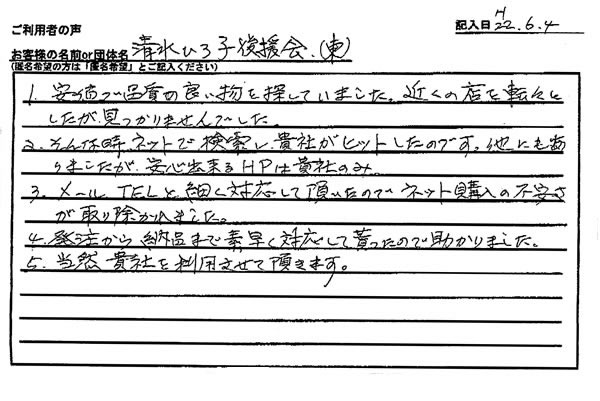 ご利用者の声
記入日 H22.6.4
お客様の名前or団体名 清水ひろ子後援会.(東)
(匿名希望の方は「匿名希望」とご記入ください)
1. 安価で品質の良い物を探していました。近くの店を転々と
したが見つかりませんでした。
2. そんな時ネットで検索し貴社がヒットしたのです。他にもあ
りましたが、安心出来るHPは貴社のみ。
3. メール TELと細く対応して頂いたのでネット購入の不安さ
が取り除かれました。
4. 発注から納品まで素早く対応して貰ったので助かりました。
5. 当然貴社を利用させて頂きます。